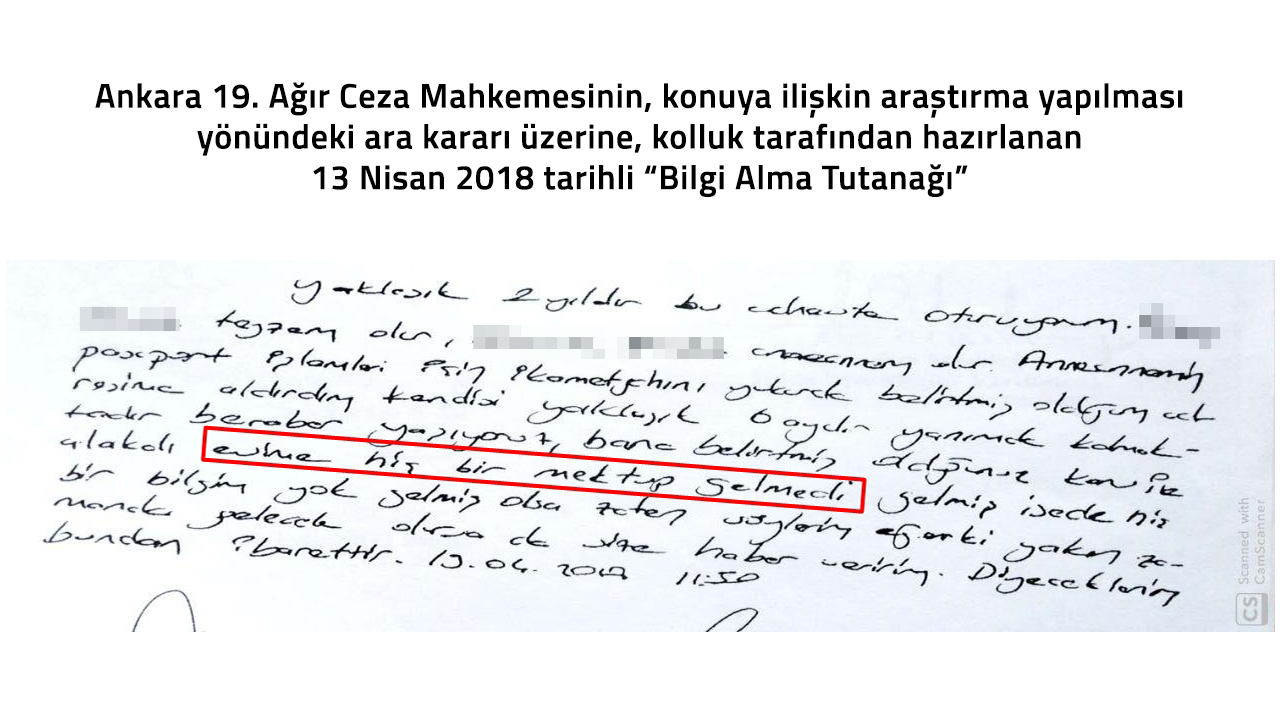 Ankara 19. Ağır Ceza Mahkemesinin, konuya ilişkin araştırma yapılması
yönündeki ara kararı üzerine, kolluk tarafından hazırlanan
13 Nisan 2018 tarihli “Bilgi Alma Tutanağı”
yaklaşık 2 yıldır bu oturuyorum.
teyzem olur, anneannem olur. Anneannemin
pasaport işlemleri için ikametgahını yukarıda belirtmiş olduğum ad-
resime aldırdım kendisi yaklaşık 6 aydır yanımda kalmak-
tadır beraber yaşıyoruz, bana belirtmiş olduğunuz konu ile
alakalı evime hiç bir mektup gelmedi gelmiş isede hiç
bir bilgim yok gelmiş olsa zaten söylerim eğerki yakın za-
manda gelecek olursa da size haber veririm. Diyeceklerim
bundan ibarettir. 13.04.2018 11:50
Scanned with
CamScanner
CS